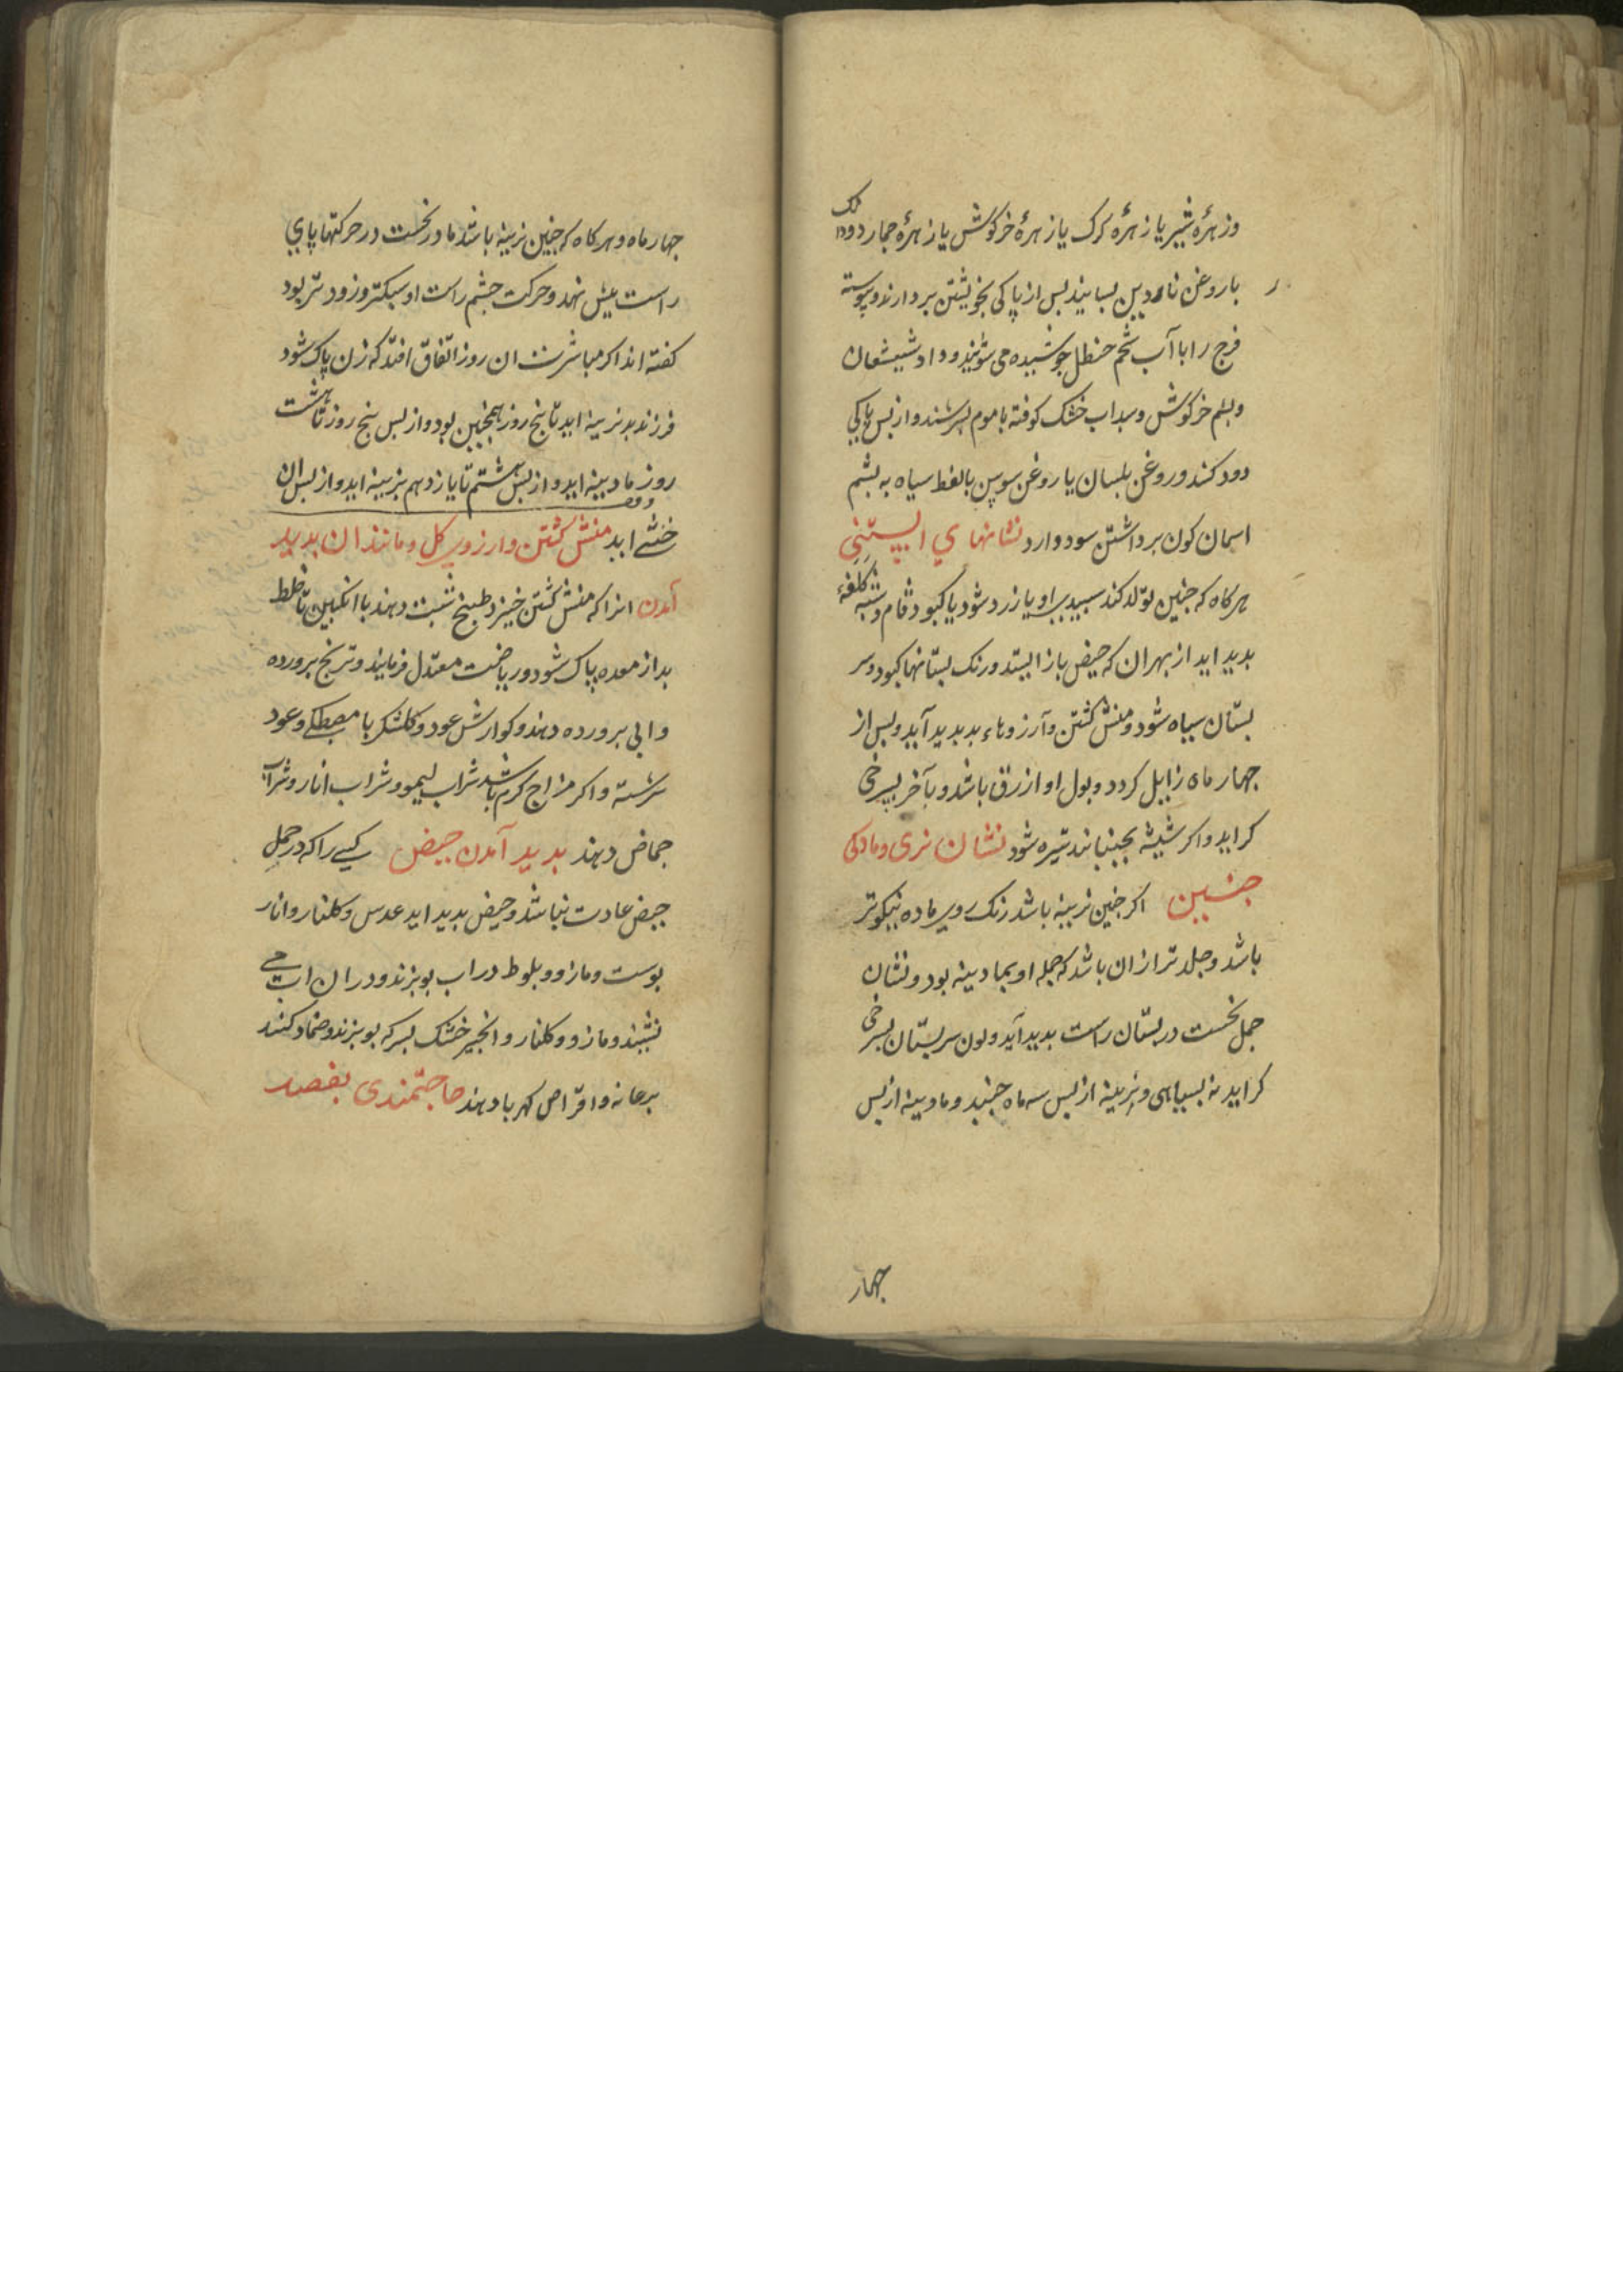 وزهرهٔ شیر یا زهرهٔ کرک یا زهرهٔ خرکوش یا زهرهٔ حمار دودانک
با روغن ناردین بسایند بس از پاکی بخویشتن بردارند و پیوسته
فرج را با آب شحم حنظل جوشیده می شویند و دار شیشعان
و بشم خرکوش و سداب خشک کوفته با موم بسرشند و از بس پاکی
دود کند و روغن بلسان یا روغن سوسن با نفط سیاه به بشم
اسمان کون برداشتن سود دارد نشانهای ابستنی
هرکاه که جنین تولد کند سبیدی او یا زرد شود یا کبود فام و شبه کلفه
بدید اید از بهر ان که حیض باز ایستد و رنک بستانها کبود و سر
بستان سیاه شود و منش کشتن و آرزوهاء بد بدید آید و بس از
جهار ماه زایل کردد و بول او ازرق باشد و بآخر بسرخی
کراید و اکر شیشه بجنبانند تیره شود نشان نری و مادکی
جنین اکر جنین نرینه باشد رنک روی ماده نیکوتر
باشد و جلد تر از ان باشد که حمله او بمادینه بود و نشان
حمل نخست در بستان راست بدید آید و لون سر بستان بسرخی
کراید نه بسیاهی و نرینه از بس سه ماه جنبد و مادینه از بس
جهار
جهار ماه و هرکاه که جنین نرینه باشد مادر نخست در حرکتها پای
راست بیش نهد و حرکت جشم راست او سبکتر و زودتر بود
کفته اند اکر مباشرت ان روز اتفاق افتد که زن پاک شود
فرزند نرینه اید تا بنج روز همجنین بود و از بس بنج روز تا هشت
روز مادینه اید و از بس هشتم تا یازدهم نرینه اید و از بس ان
خنثی اید منش کشتن و ارزوی کل و مانند ان بدید
آمدن انرا که منش کشتن خیزد طبیخ شبت دهند با انکبین تا خلط
بد از معده پاک شود و ریاضت معتدل فرمایند و ترنج برورده
و ابی برورده دهند و کوارش عود و کلشکر با مصطکی و عود
سرشته و اکر مزاج کرم باشد شراب لیمو و شراب انار و شراب
حماض دهند بدید آمدن حیض کسی را که در حمل
حیض عادت نباشد و حیض بدید اید عدس و کلنار و انار
بوست و مازو و بلوط در اب بوبزند و در ان اب می
نشیند و مازو و کلنار و انجیر خشک بسرکه بوبزند و ضماد کنند
بر عانه و اقراص کهربا دهند حاجتمندی بفصد